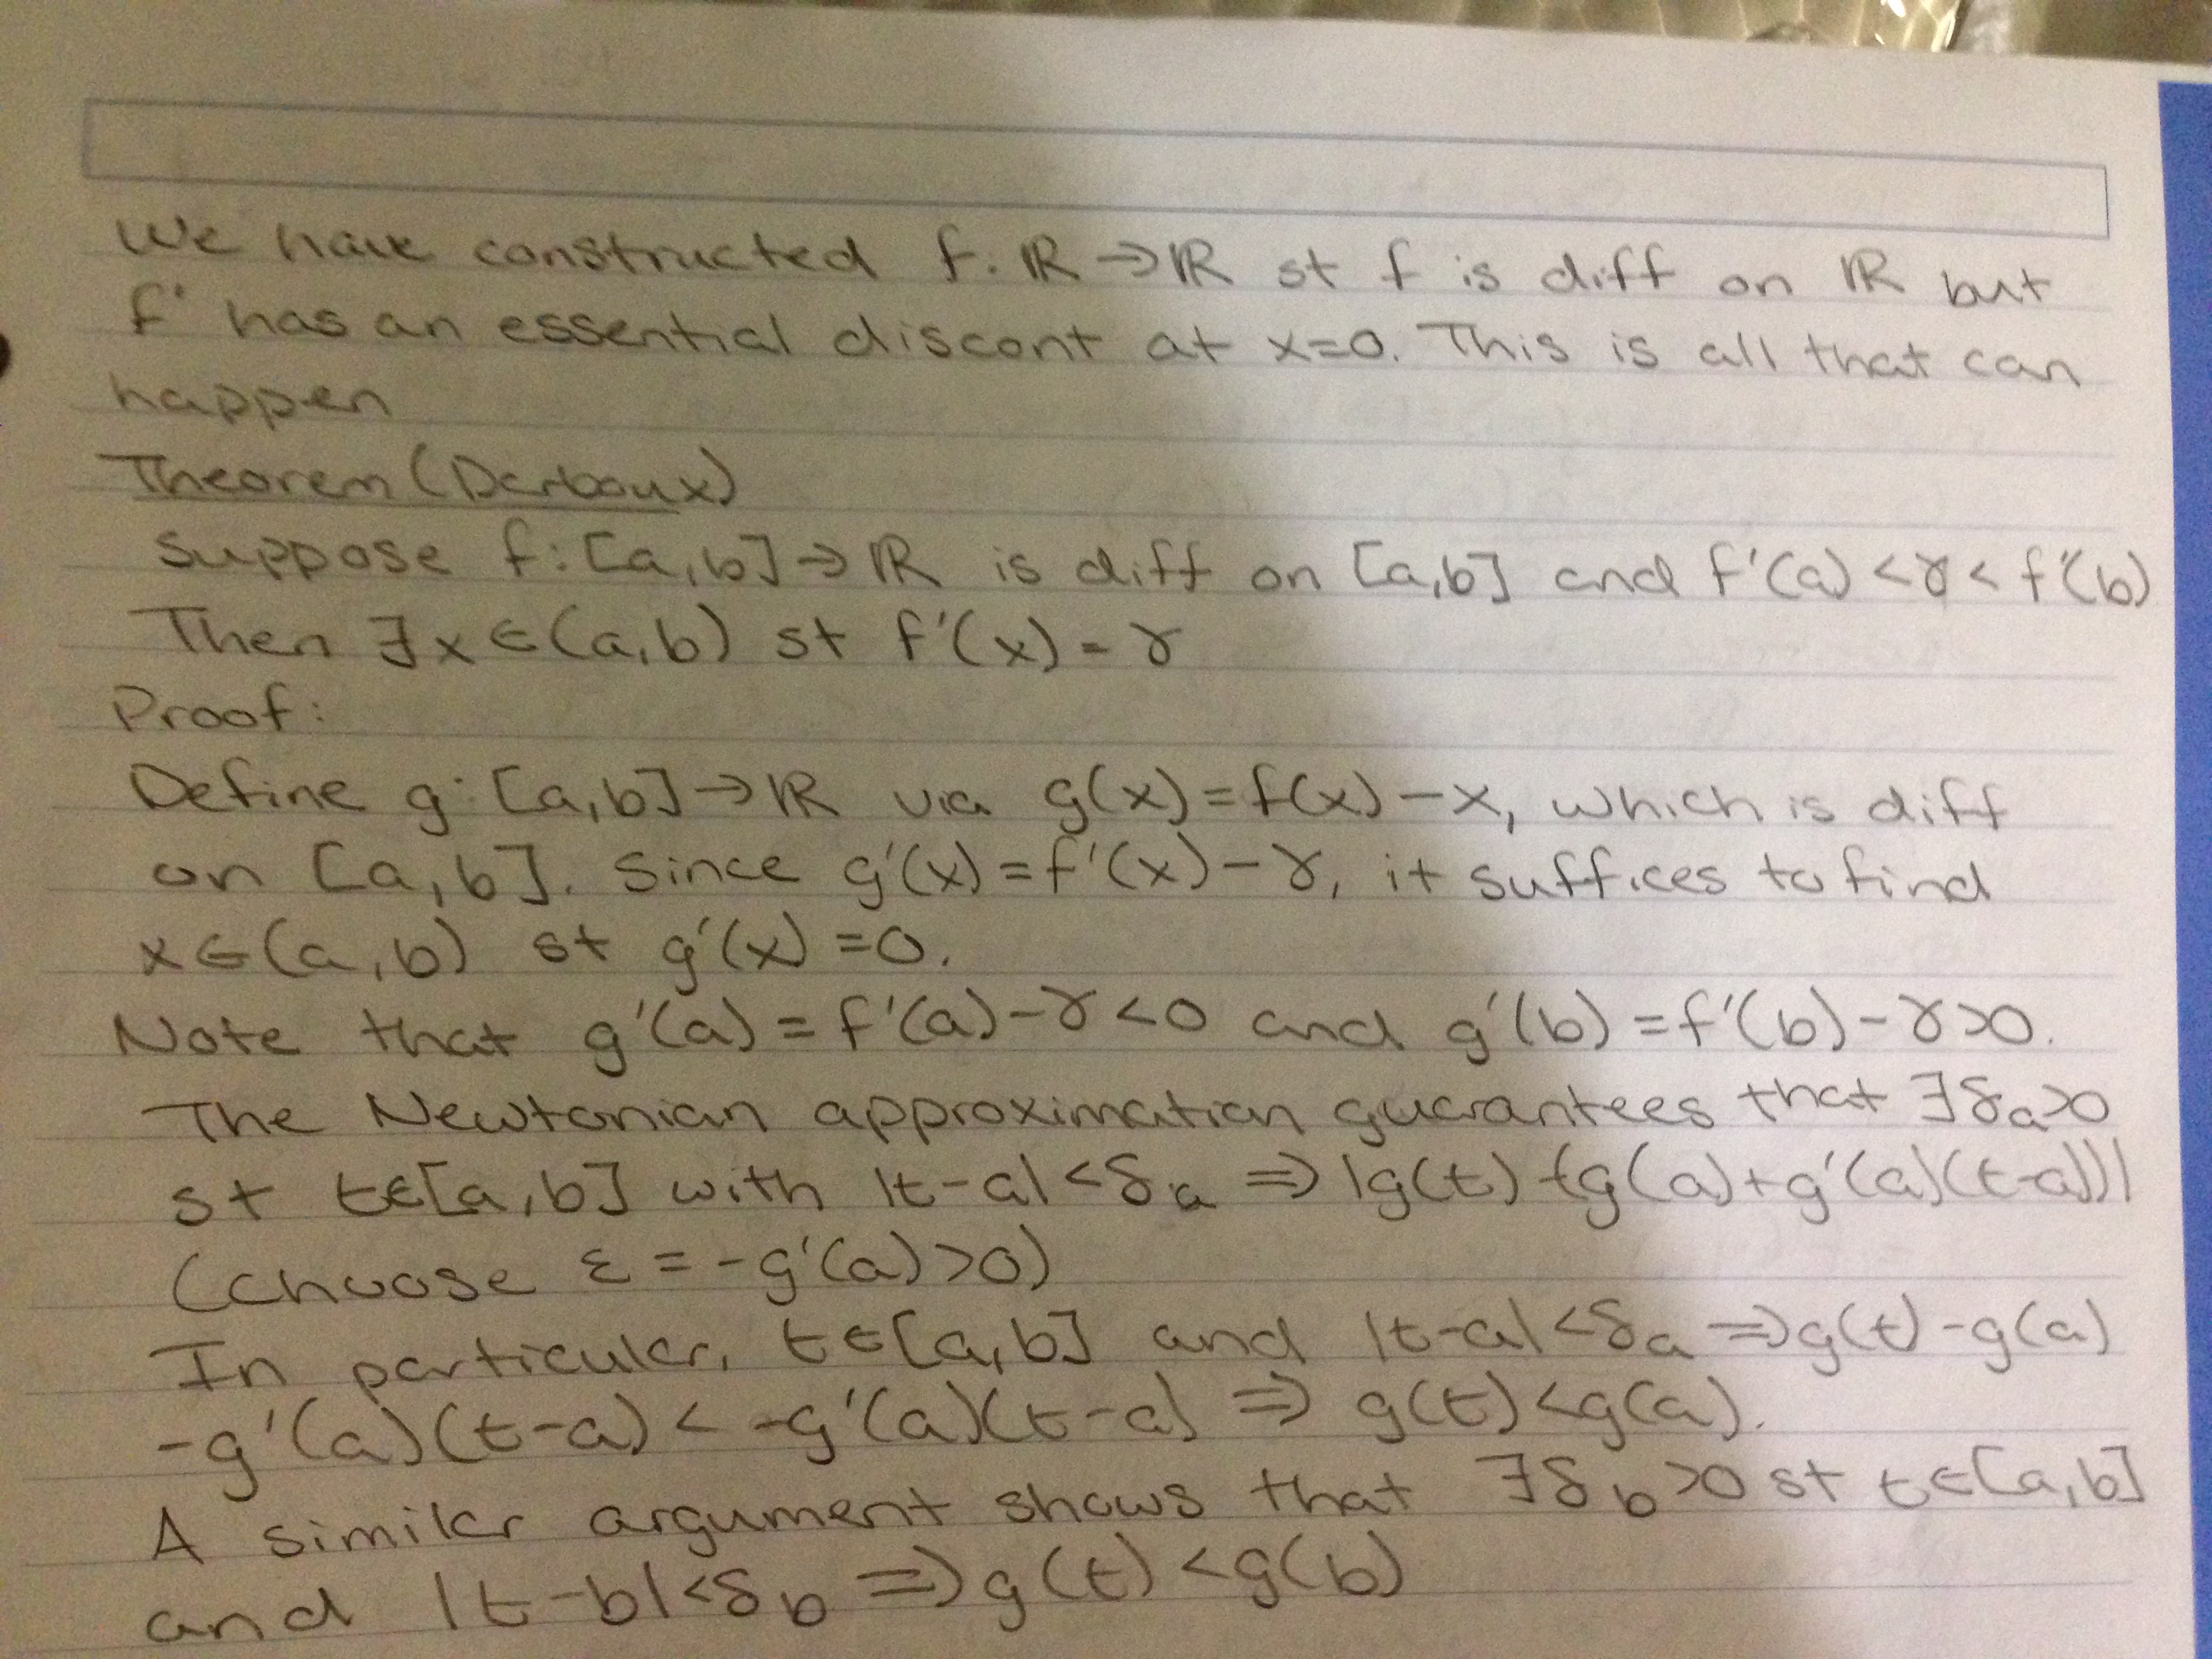 We have constructed f: ℝ→ℝ st f is diff on ℝ but
f' has an essential discont at x=0. This is all that can
happen
Theorem (Darboux)
Suppose f:[a,b]→ℝ is diff on [a,b] and f'(a)<γ<f'(b)
Then ∃x∈(a,b) st f'(x)=γ
Proof:
Define g:[a,b]→ℝ via g(x)=f(x)-x, which is diff
on [a,b]. Since g'(x)=f'(x)-γ, it suffices to find
x∈(a,b) st g'(x)=0.
Note that g'(a)=f'(a)-γ<0 and g'(b)=f'(b)-γ>0.
The Newtonian approximation guarantees that ∃δₐ>0
st t∈[a,b] with |t-a|<δₐ ⇒ |g(t)-(g(a)+g'(a)(t-a))|
(choose ε=-g'(a)>0)
In particular, t∈[a,b] and |t-a|<δₐ ⇒g(t)-g(a)
-g'(a)(t-a)< -g'(a)(t-a) ⇒ g(t)<g(a).
A similar argument shows that ∃δ_b>0 st t∈[a,b]
and |t-b|<δ_b ⇒ g(t)<g(b)